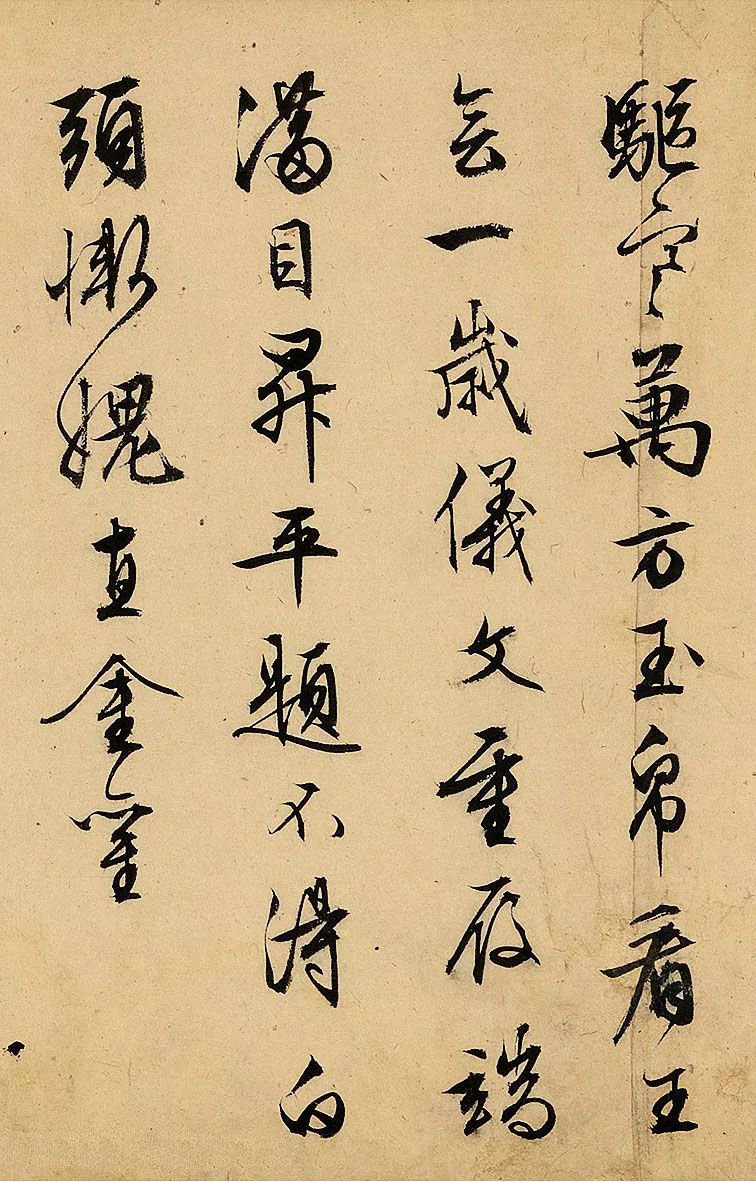 驅寒萬方玉帛看王
會一歲儀文重履端
滿目昇平題不得白
頭慚愧直金鑾